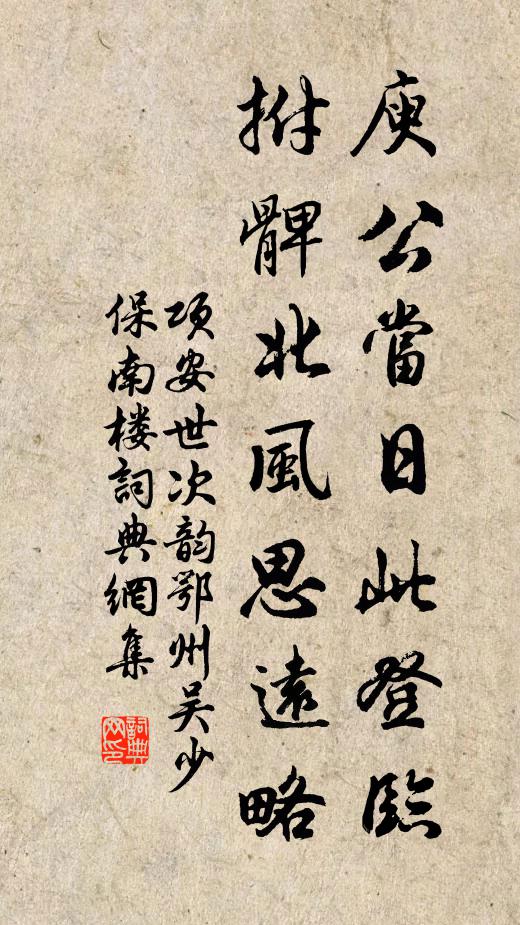 庾公當日此登臨
拊髀北風思遠略
项安世次韵鄂州吴少
保南楼詞典網集
詞典网印